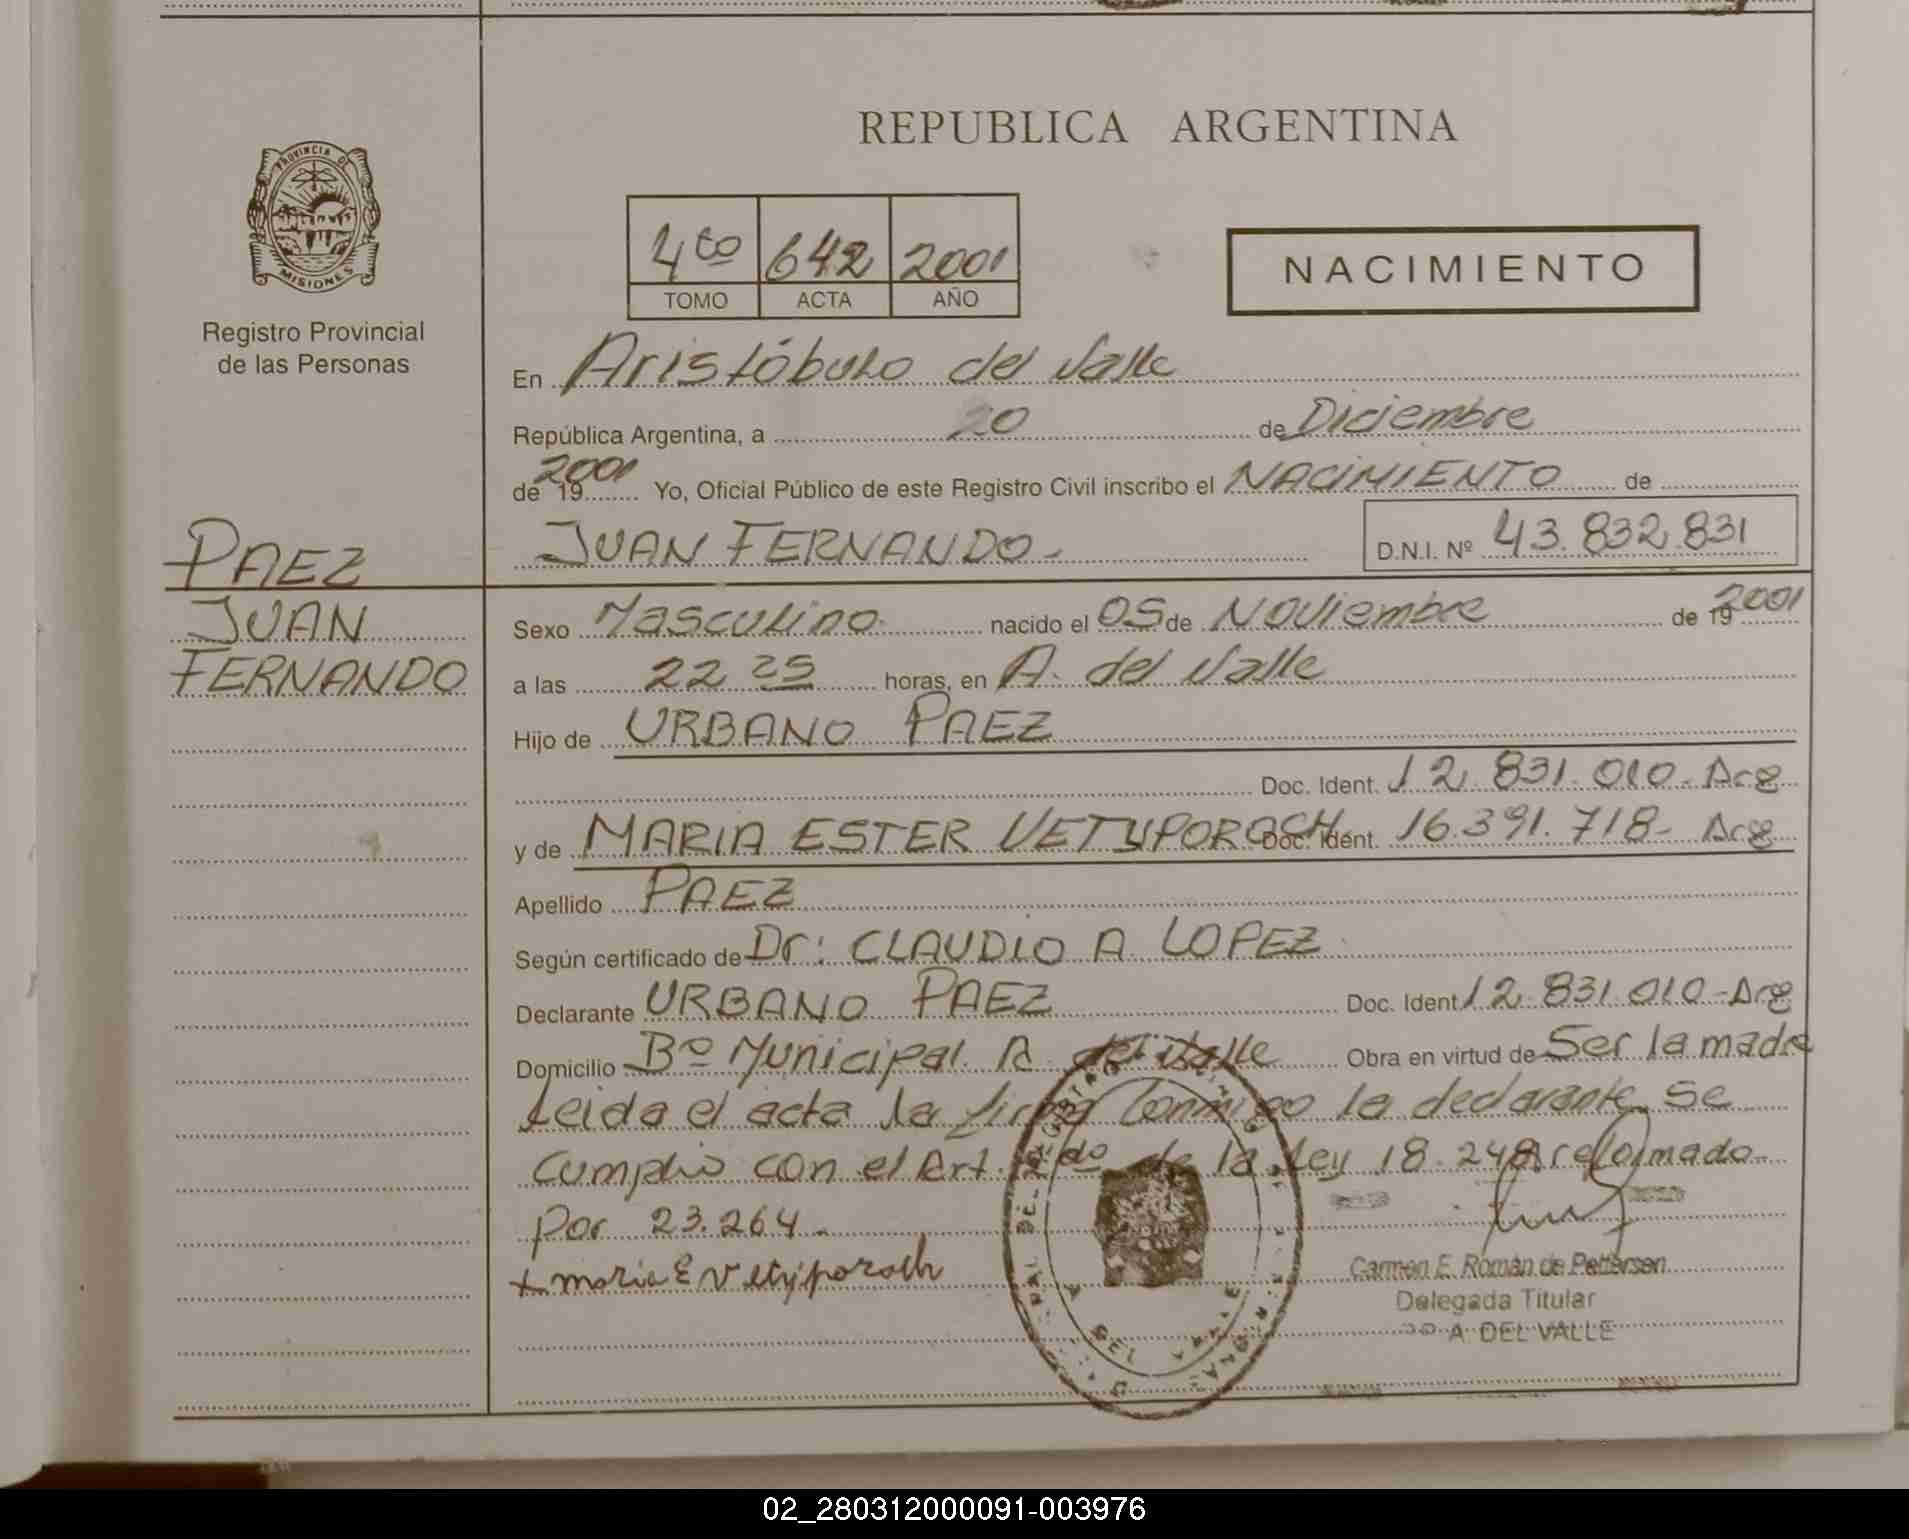 REPUBLICA ARGENTINA
PROVINCIA DE
MISIONES
Registro Provincial
de las Personas
4to 642 2001
TOMO ACTA AÑO
NACIMIENTO
En Aristóbulo del Valle
República Argentina, a 20 de Diciembre
de 19 2001 Yo, Oficial Público de este Registro Civil inscribo el NACIMIENTO de
JUAN FERNANDO- D.N.I. Nº 43.832.831
PAEZ
JUAN
FERNANDO
Sexo Masculino nacido el 05 de Noviembre de 19 2001
a las 22 25 horas, en A. del Valle
Hijo de URBANO PAEZ
Doc. Ident. 12.831.010-Arg
y de MARIA ESTER VETYPORACH Doc. Ident. 16.391.718- Arg
Apellido PAEZ
Según certificado de Dr: CLAUDIO A LOPEZ
Declarante URBANO PAEZ Doc. Ident 12.831.010-Arg
Domicilio Bº Municipal A. del Valle Obra en virtud de Ser la madre
Leida el acta la firma Conmigo la declarante Se
cumplio con el Art. de la Ley 18.248 reformado
por 23.264-
x maria E Vetyporach
Carmen E. Román de Pettersen
Delegada Titular
A. DEL VALLE
DEL VALLE
02_280312000091-003976